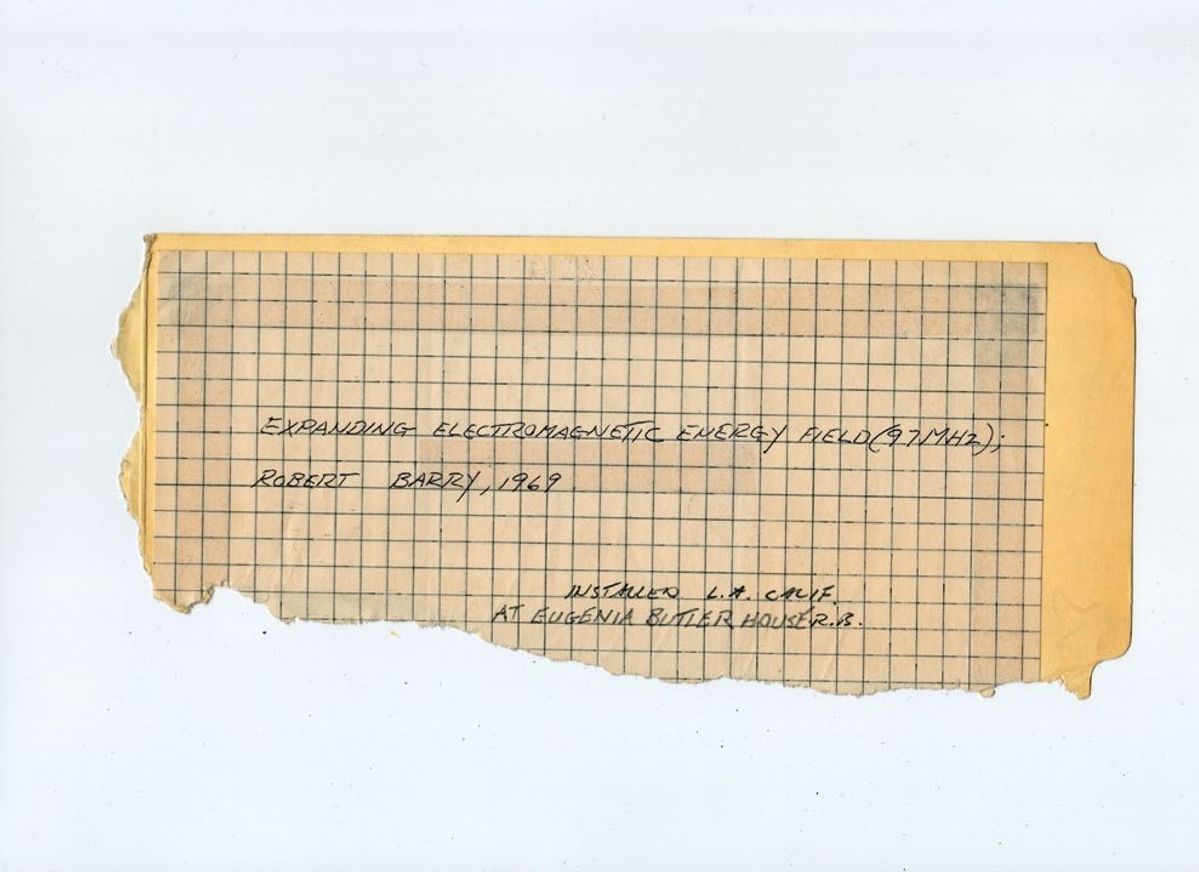 EXPANDING ELECTROMAGNETIC ENERGY FIELD (97MHz);
ROBERT BARRY, 1969
INSTALLED L.A. CALIF.
AT EUGENIA BUTLER HOUSE R.B.